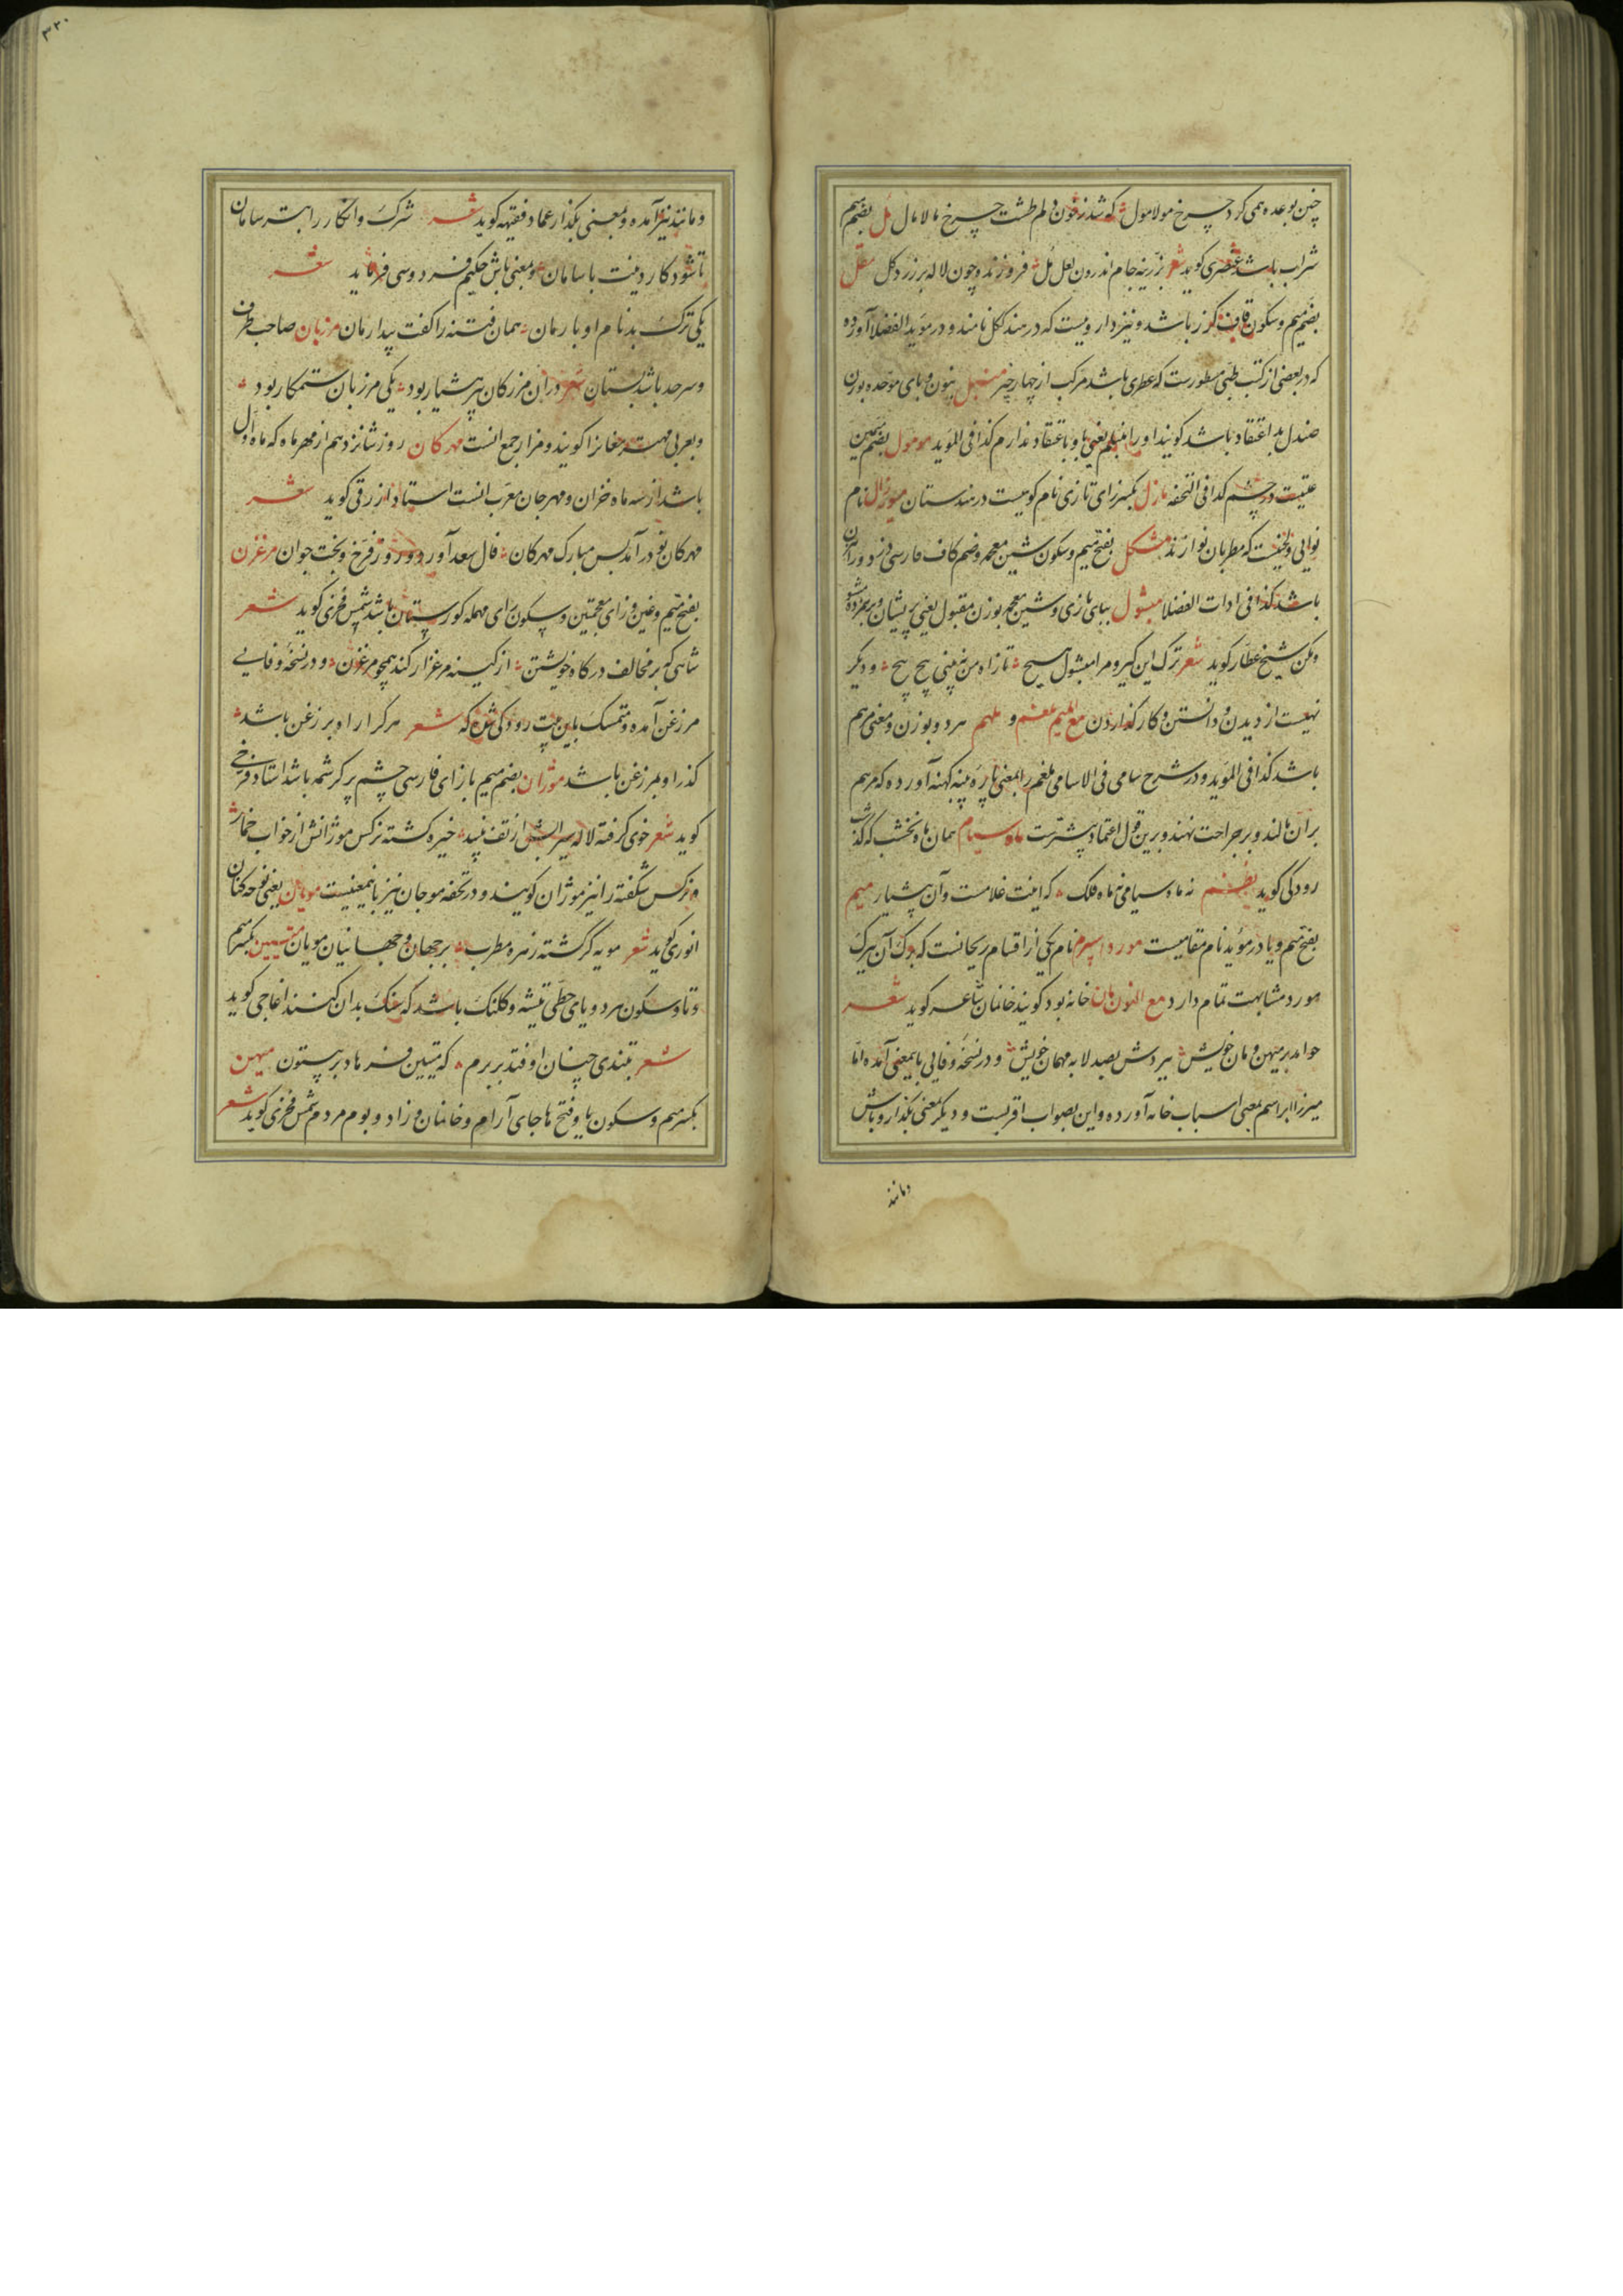 چنین بوعده همی کرد چرخ مولامول که شد ز خون دلم طشت چرخ مالامال مل بضم میم
شراب باشد عنصری کوید شعر بزرینه جام اندرون لعل مل فروزنده چون لاله بر زرد کل مقل
بضم میم وسکون قاف کزر باشد ونیز دارویست که در هند ککل نامند ودر موید الفضلا آورده
که در بعضی از کتب طبی مسطورست که عطری باشد مرکب از چهار چیز منبل بنون وبای موحده بوزن
صندل بد اعتقاد باشد کویند او را منبلم یعنی باو باعتقاد ندارم کذا فی الموید مومول بضم میمین
علتیست در چشم کذا فی التحفه مازل بکسر زای تازی نام کوهیست در هندستان نام
نوایی ولحنیست که مطربان نوازند مشکل بفتح میم وسکون شین معجمه وضم کاف فارسی دزد وراهزن
باشد کذا فی ادات الفضلا مبشول ببای تازی وشین معجمه بوزن مقبول یعنی پریشان وبرهمزده مشو
ومکن شیخ عطار کوید شعر ترک این کیر و مرا مبشول هیچ تا ز راه من نه پینی پیچ پیچ ودیکر
نهیست از دیدن ودانستن وکار کذاردن مع المیم ملغم و ملهم هردو بوزن ومعنی مرهم
باشد کذا فی الموید ودر شرح سامی فی الاسامی ملغم را بمعنی پاره پنبه کهنه آورده که مرهم
بر آن مالند وبر جراحت نهند وبرین قول اعتماد پیشترست ماه سیام همان ماه نخشب که کذشت
رودکی کوید نظم نه ماه سیامی نه ماه فلک که اینت غلامست وآن پیشیار میم
بفتح میم ویا در موید نام مقامیست مورد اسپرم نام یکی از اقسام ریحانست که برک آن ببرک
مورد مشابهت تمام دارد مع النون مان خانه بود کویند خانمان شاعر کوید شعر
خوامد بر میهن ومان خویش ببردش بصد لابه مهمان خویش ودر نسخه وفایی باینمعنی آمده اما
میرزا ابراهیم بمعنی اسباب خانه آورده واین بصواب اقربست ودیکر بمعنی بکذار وباش
ومانند
۳۲۰
ومانند نیز آمده وبمعنی بکذار عماد فقیه کوید شعر شرک وانکار را بتر سامان
تا شود کار دینت باسامان وبمعنی باش حکیم فردوسی فرماید شعر
یکی ترک بد نام او بارمان همان فتنه را کفت پیدار مان مرزبان صاحب طرف
وسرحد باشد بستان شعر دران مرز کان پیر هشیار بود یکی مرزبان ستمکار بود
وبعربی مهتر مغانرا کویند ومزار جمع انست مهرکان روز شانزدهم از مهرماه که ماه اول
باشد از سه ماه خزان ومهرجان معرب انست استاد ازرقی کوید شعر
مهرکان نو درآمد بس مبارک مهرکان فال سعد آورد وروز فرخ وبخت جوان مرغزن
بفتح میم وغین وزای معجمتین وسکون رای مهمله کورستان باشد شمس فخری کوید شعر
شاهی که بر مخالف درکاه خویشتن از کینه مرغزار کند همچو مرغزن ودر نسخه وفایی
مرزغن آمده ومتمسک باین بیت رودکی شده که شعر هرکرا راهبر زغن باشد
کذر او بمرزغن باشد موژان بضم میم با زای فارسی چشم پر کرشمه باشد استاد فرخی
کوید شعر خوی کرفته لاله سیرابش از تف نبید خیره کشته نرکس موژانش از خواب خمار
ونرکس شکفته را نیز موژان کویند ودر تحفه موجان نیز باینمعنیست مویان یعنی نوحه کنان
انوری کوید شعر مویه کر کشته زهره مطرب بر جهان وجهانیان مویان متیین بکسر میم
وتا وسکون هردو یای حطی تیشه وکلنک باشد که سنک بدان کنند اغاجی کوید
شعر بتندی چنان اوفتد بر برم که متیین فرهاد بر بیستون میهن
بکسر میم وسکون یا وفتح ها جای آرام وخانمان وزاد وبوم مردم شمس فخری کوید شعر